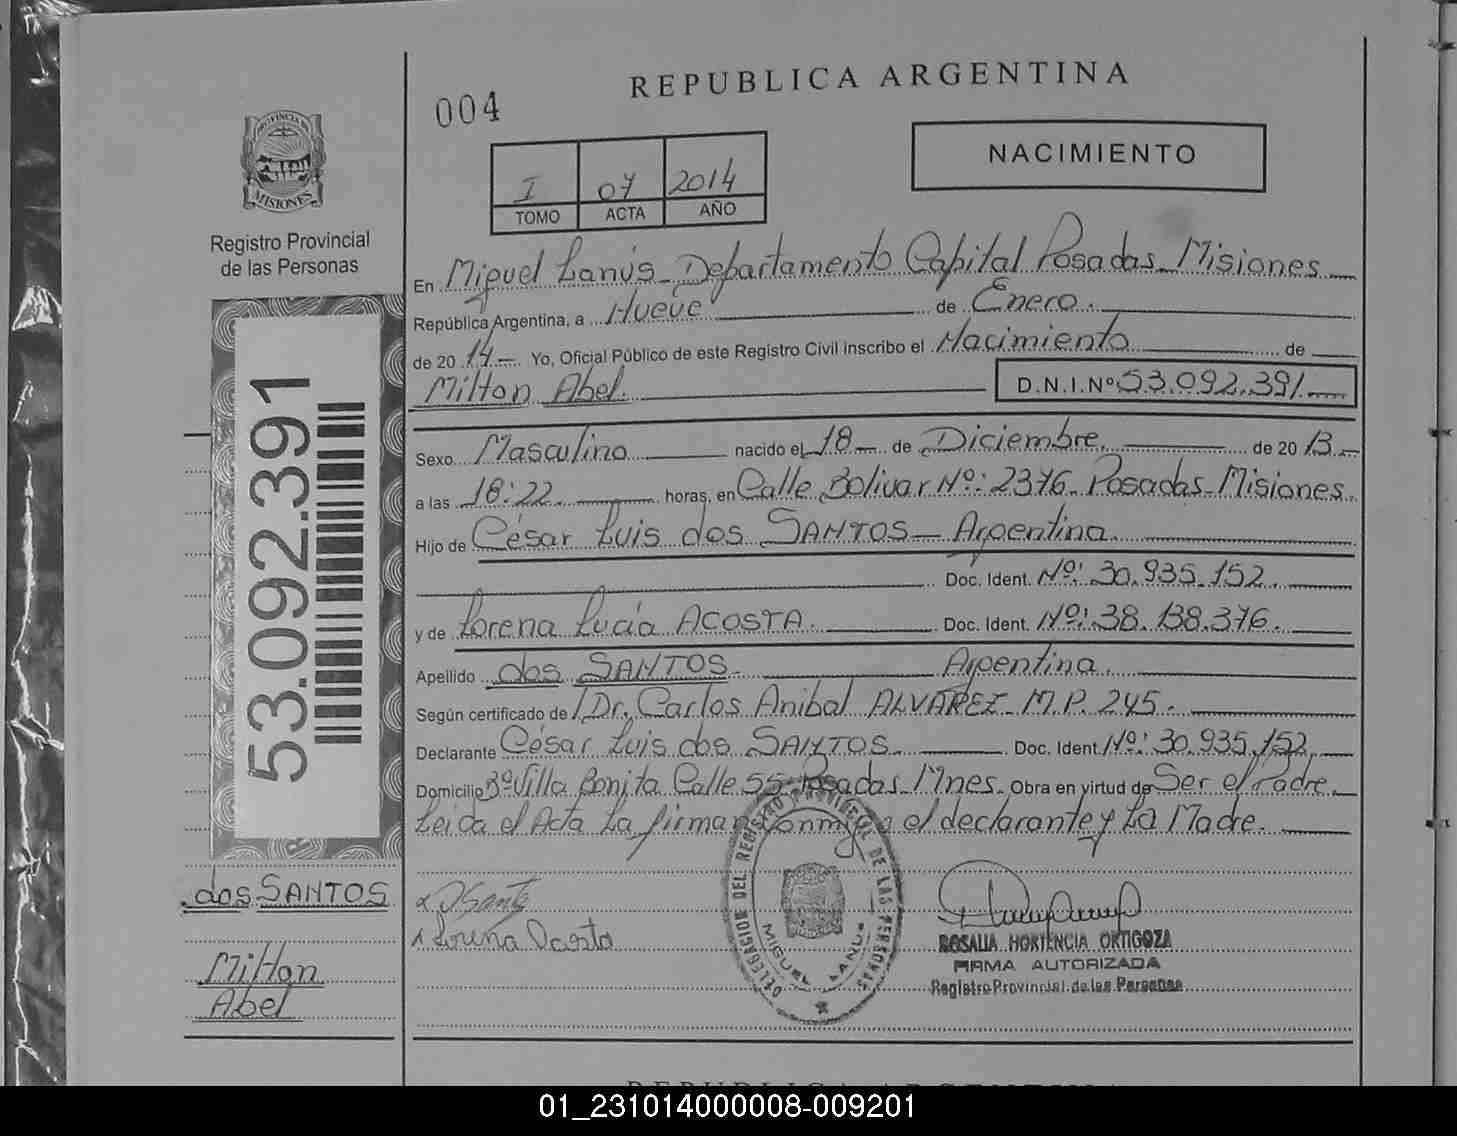 REPUBLICA ARGENTINA
004
NACIMIENTO
I 07 2014
TOMO ACTA AÑO
PROVINCIA DE
MISIONES
Registro Provincial
de las Personas
53.092.391
dos SANTOS
Milton
Abel
En Miguel Lanús Departamento Capital Posadas Misiones
República Argentina, a Nueve de Enero
de 20 14 Yo, Oficial Público de este Registro Civil inscribo el Nacimiento de
Milton Abel. D.N.I.Nº 53.092.391
Sexo Masculino nacido el 18 de Diciembre de 20 13
a las 18:22 horas, en Calle Bolivar Nº: 2376 Posadas Misiones.
Hijo de César Luis dos SANTOS - Argentina.
Doc. Ident. Nº: 30.935.152.
y de Lorena Lucía ACOSTA. Doc. Ident. Nº: 38.138.376.
Apellido dos SANTOS Argentina.
Según certificado de Dr. Carlos Anibal ALVAREZ M.P. 245.
Declarante César Luis dos SANTOS Doc. Ident. Nº: 30.935.152
Domicilio Bº Villa Bonita Calle 55 Posadas Mnes. Obra en virtud de Ser el Padre.
Leida el Acta La firman conmigo el declarante y La Madre.
DELEGACION DEL REGISTRO PROVINCIAL DE LAS PERSONAS
MIGUEL LANUS
ROSALIA HORTENCIA ORTIGOZA
FIRMA AUTORIZADA
Registro Provincial de las Personas
REPUBLICA ARGENTINA
01_231014000008-009201